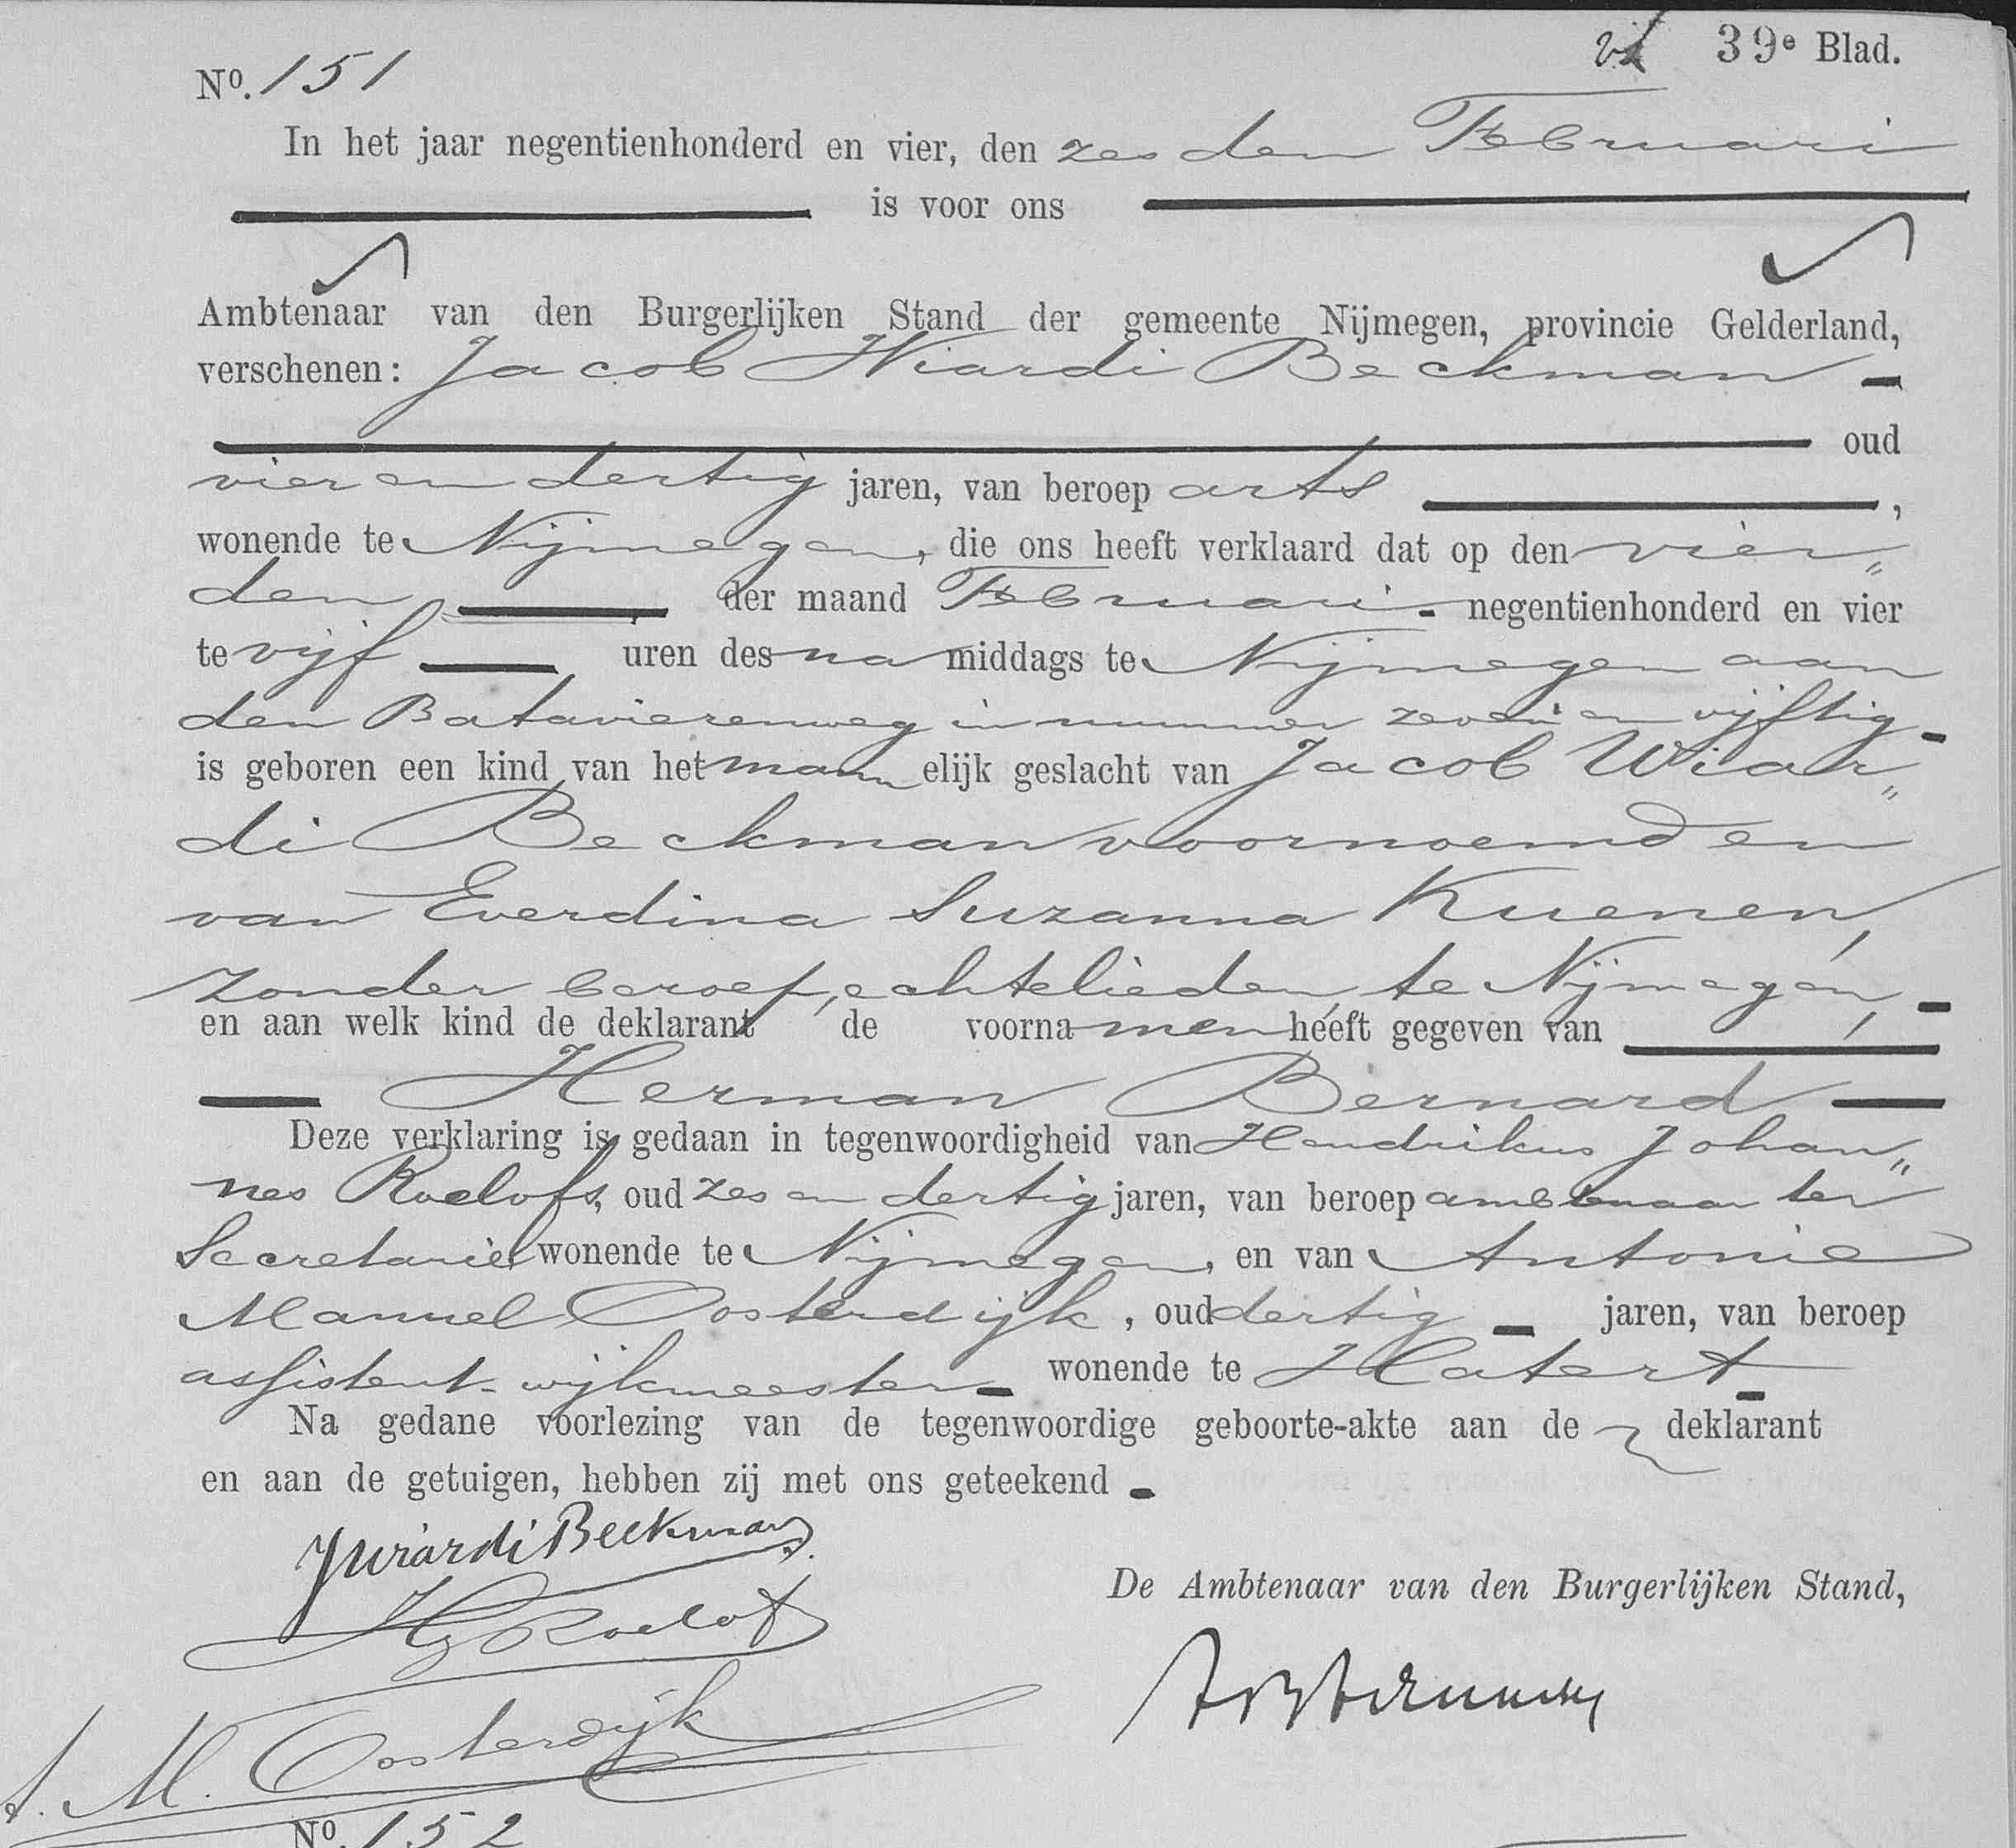 39e Blad.
No. 151
In het jaar negentienhonderd en vier, den zesden Februari
is voor ons
Ambtenaar van den Burgerlijken Stand der gemeente Nijmegen, provincie Gelderland,
verschenen: Jacob Wiardi Beckman
oud
vier en dertig jaren, van beroep arts ,
wonende te Nijmegen, die ons heeft verklaard dat op den vier„
den der maand Februari negentienhonderd en vier
te vijf uren des namiddags te Nijmegen aan
den Batavierenweg in nummer zeven en vijftig
is geboren een kind van het mannelijk geslacht van Jacob Wiar„
di Beckman voornoemd en
van Everdina Suzanna Kuenen,
zonder beroep, echtelieden, te Nijmegen,
en aan welk kind de deklarant de voornamen heeft gegeven van
Herman Bernard
Deze verklaring is gedaan in tegenwoordigheid van Hendrikus Johan„
nes Roelofs, oud zes en dertig jaren, van beroep ambtenaar ter
Secretarie, wonende te Nijmegen, en van Antonie
Manuel Oosterdijk, oud dertig jaren, van beroep
assistent-wijkmeester wonende te Hatert
Na gedane voorlezing van de tegenwoordige geboorte-akte aan de deklarant
en aan de getuigen, hebben zij met ons geteekend
JWiardi Beckman
HJRoelofs
De Ambtenaar van den Burgerlijken Stand,
A. M. Oosterdijk
No. 152